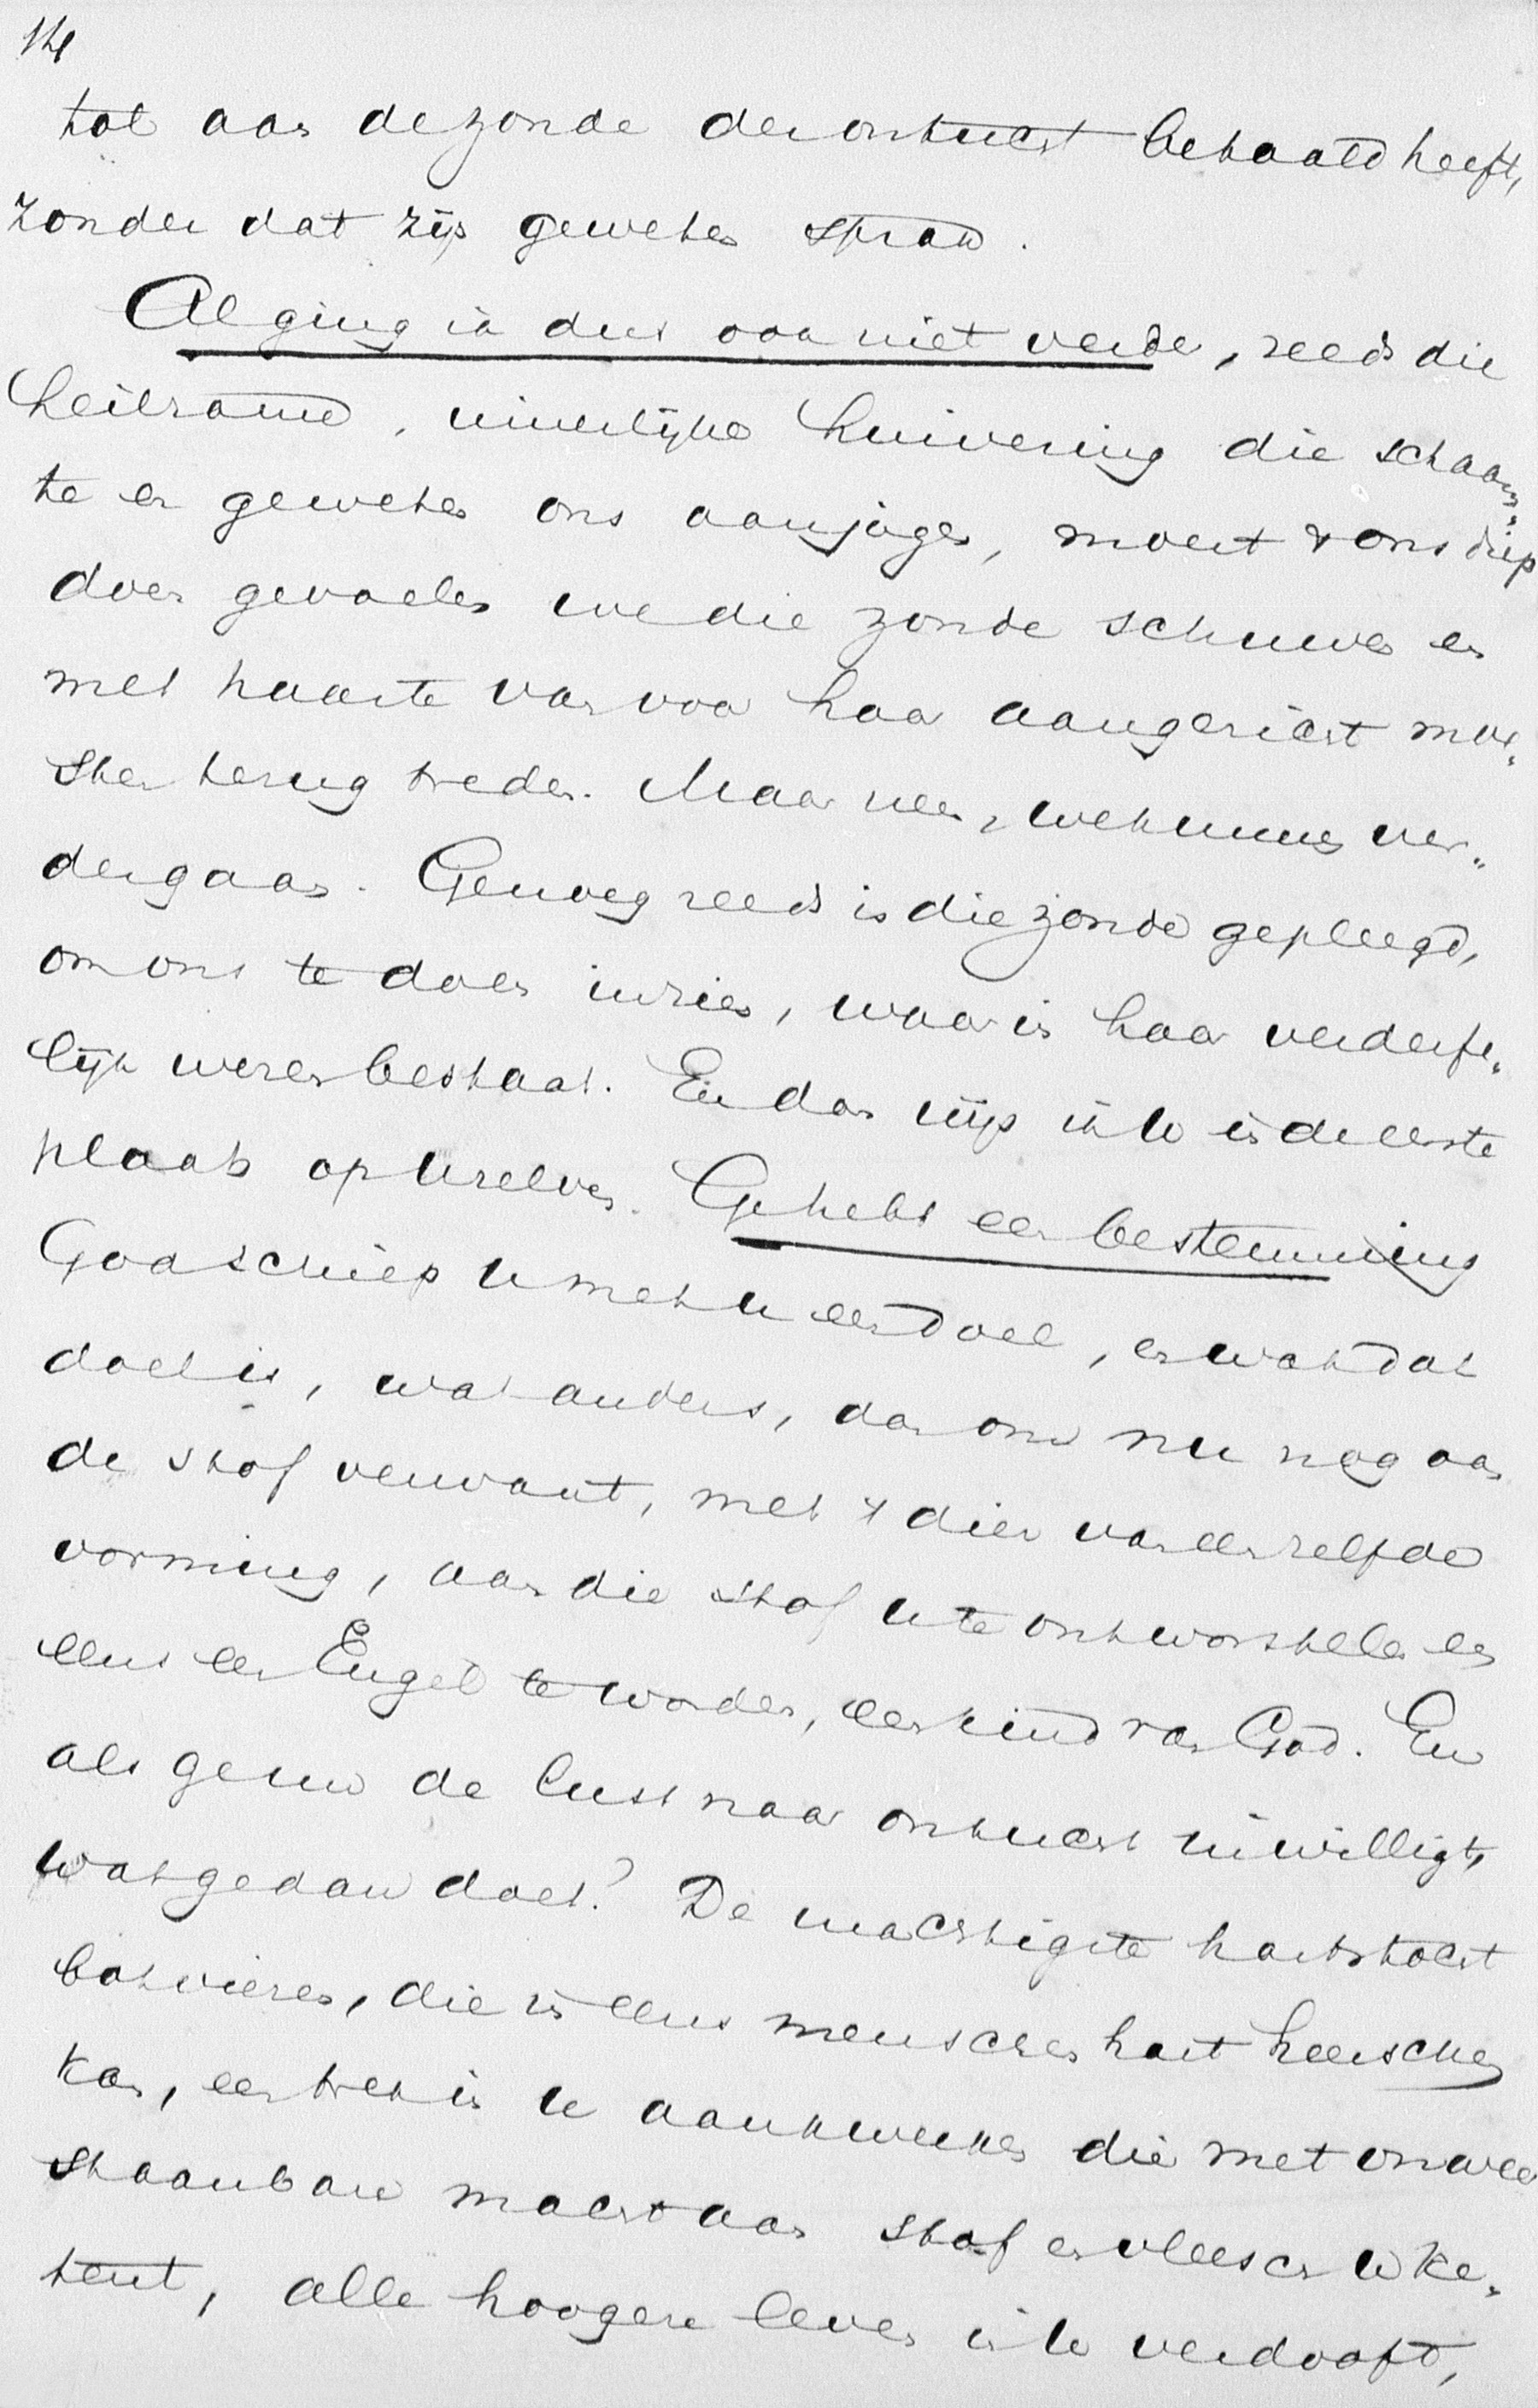 14
tol aan de zonde der ontucht betaald heeft,
zonder dat zijn geweten sprak.
Al ging ik dus ook niet verder, reeds die
heilzame, innerlijke huivering die schaam„
te en geweten ons aanjagen, moest 't ons diep
doen gevoelen we die zonde schuwen en
met haaste van voor haar aangericht moe„
sten terug treden. Maar neen, we kunnen ver„
der gaan. Genoeg reeds is die zonde gepleegd,
om ons te doen inzien, waar in haar verderfe„
lijk wezen bestaat. En dan wijs ik U in de eerste
plaats op Uzelven. Ge hebt een bestemming
God schiep U met U een doel, en wat dat
doel is, wat anders, dan om nu nog aan
de stof verwant, met 't dier van eenzelfde
vorming, aan die stof U te ontworstelen en
eens een Engel te worden, een kind van God. En
als ge nu de lust naar ontucht inwilligt,
wat ge dan doet? De machtigste hartstocht
botvieren, die in eens menschen hart heerschen
kan, een trek in U aankweeken die met onwee
staanbare macht aan stof en vleesch U ke„
tent, alle hoogere leven in U verdooft,